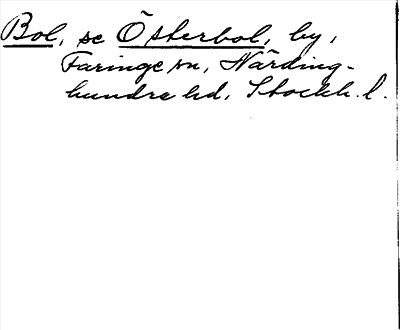 Bol, se Österbol, by,
Faringe sn, Närding-
hundra hd, Stockh. l.